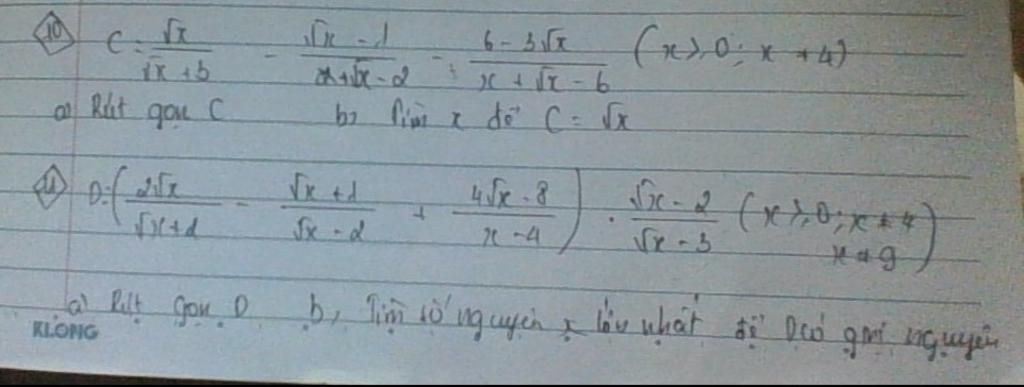 10 C = √x/(√x + 3) - (√x - 1)/(x + √x - 2) - (6 - 3√x)/(x + √x - 6) (x ≥ 0; x ≠ 4)
a) Rút gọn C b, Tìm x để C = √x
11 D = (2√x/(√x + 2) - (√x + 1)/(√x - 2) + (4√x - 8)/(x - 4)) · (√x - 2)/(√x - 3) (x ≥ 0; x ≠ 4
x ≠ 9)
a) Rút gọn D b, Tìm số nguyên x lớn nhất để D có giá trị nguyên
KLONG